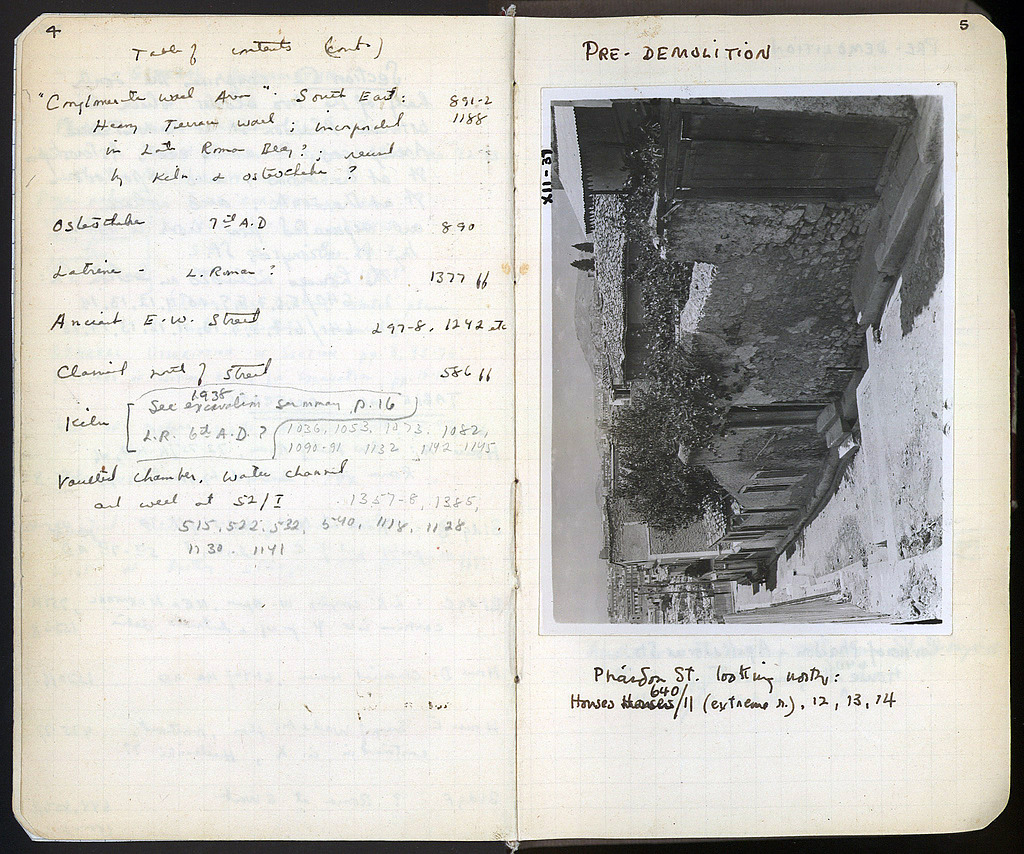 4
Table of contents (contd)
"Conglomerate Wall Area": South East: 891-2
Heavy Terrace wall; incorporated 1188
in Late Roman Bldg?; reused
by Kiln & Osteotheke?
Osteotheke 7th A.D 890
Latrine - L. Roman? 1377 ff
Ancient E.W. Street 297-8, 1242 etc
Classical north of Street 586 ff
Kiln
See 1938 excavation summary p. 16
L.R. 6th A.D.? 1036, 1053, 1073, 1082,
1090-91, 1132 1142 1145
Vaulted chamber, water channel
and well at 52/I 1357-8, 1385,
515, 522, 532, 540, 1118, 1128,
1130. 1141
5
PRE-DEMOLITION
XII-37
Phaidon St. looking north:
Houses Houses 640/11 (extreme r.), 12, 13, 14